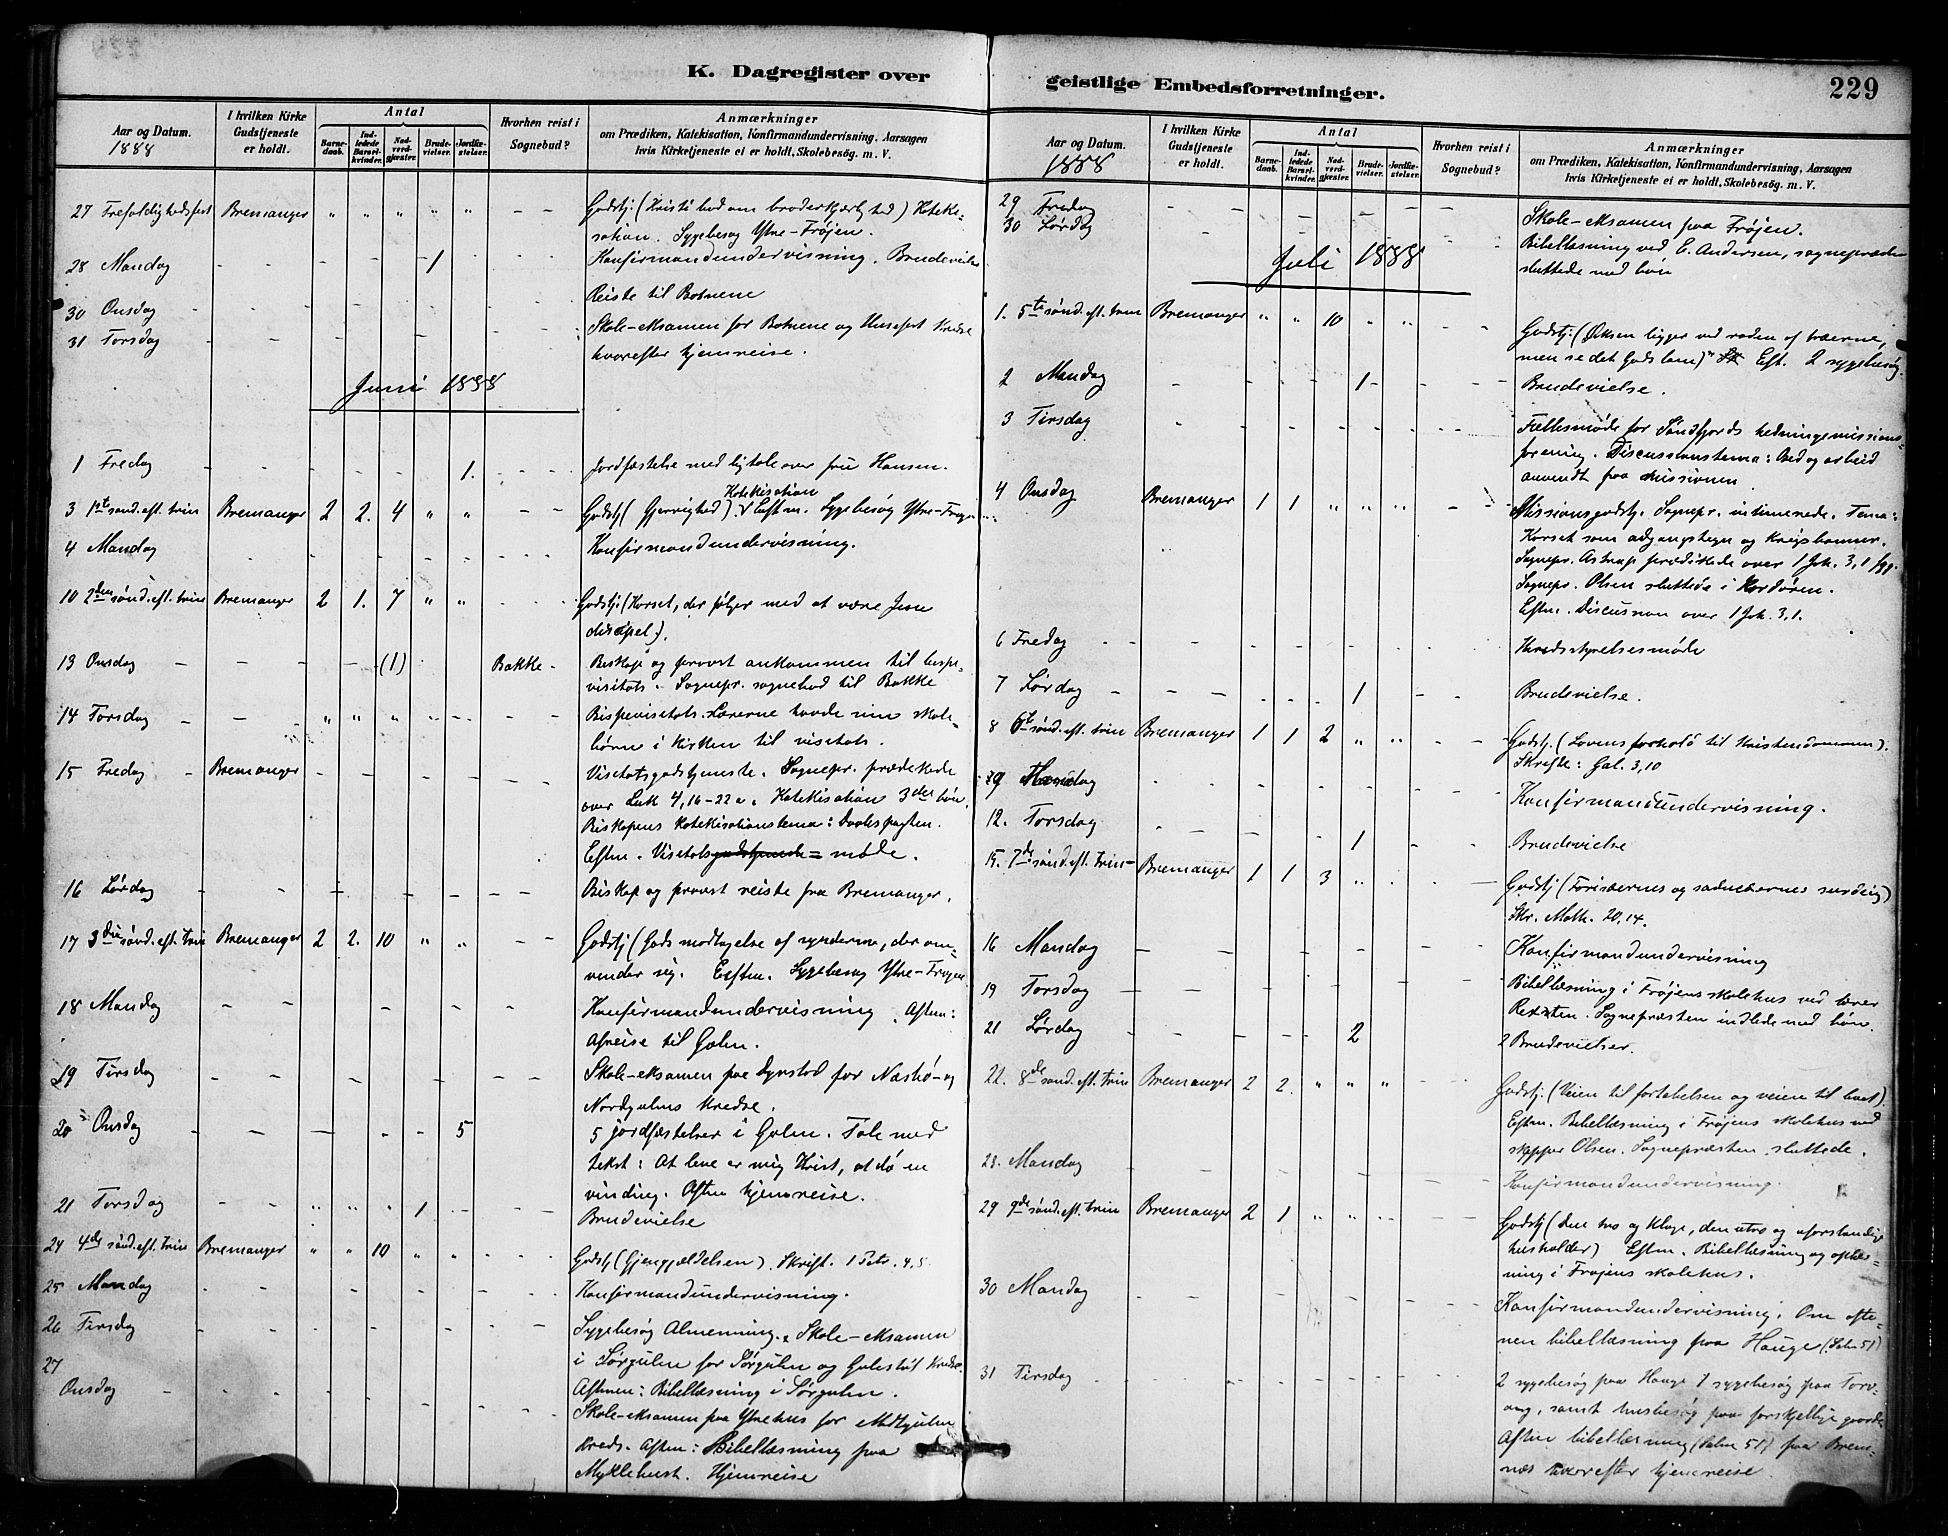 K. Dagregister over
Aar og Datum. 1888
I hvilken Kirke Gudstjeneste er holdt.
Antal
Barnedaab. Indledede Barselkvinder. Nadverdgjæster. Brudevielser. Jordfæstelser.
Hvorhen reist i Sognebud?
Anmærkninger
om Prædiken, Katekisation, Konfirmandundervisning, Aarsagen
hvis Kirketjeneste ei er holdt, Skolebesøg. m. V.
27 Trefoldighedsfest Bremanger " " " " " - - Gudstj. (Kristi bud om broderkjærlighed) Kateke-
sation. Sygebesøg Ytre-Frøjen.
28 Mandag - - - - - 1 - - Konfirmandundervisning. Brudevielse
Reiste til Botnene
30 Onsdag
31 Torsdag Skole-eksamen for Botnene og Husefest Kredse
hvorefter hjemreise.
Juni 1888
1 Fredag - - - - - 1. - - Jordfæstelse med ligtale over fru Hansen.
3 1ste sønd. eft. trin Bremanger 2 2. 4 " " - - Gudstj. (Gjerrighed). Katekisation Eftm. Sygebesøg Ytre-Frøjen
4 Mandag Konfirmandundervisning.
10 2den sønd. eft. trin Bremanger 2 1. 7 " " - - Gudstj. (Korset, der følger med at være Jesu
discipel).
13 Onsdag - - - - (1) Bakke - Biskop og provst ankommen til bispe-
visitats. Sognepr. sognebud til Bakke
14 Torsdag - - " " " - - - - Bispevisitats. Lærerne havde sine skole-
børn i kirken til visitats.
15 Fredag - Bremanger - - - - - - - Visitatsgudstjeneste. Sognepr. prædikede
over Luk 4,16-22a. Katekisation 3die bøn.
Biskopens Katekisationstema: Daabspagten.
Eftm. Visitatsgudstjeneste= møde.
16 Lørdag - - - - - - - - - Biskop og provst reiste fra Bremanger.
17 3die sønd. eft. trin Bremanger 2 2. 10 " " - - Gudstj (Guds modtagelse af synderne, der om-
vender sig. Eftm. Sygebesøg Ytre-Frøjen
18 Mandag - - - - - - - Konfirmandundervisning. Aftnen:
Afreise til Gulen.
19 Tirsdag - - - - - - - Skole-eksamen paa for Næsbø- og
Nordgulens Kredse.
20 Onsdag - - - - - 5 5 jordfæstelser i Gulen. Tale med
tekst: At leve er mig Krist, at dø en
vinding. Aften hjemreise.
21 Torsdag - - " " " 1 - - - Brudevielse
24 4de sønd. eft. trin Bremanger " " 10 " " - - Gudstj (Gjengjældelsen). Skrift. 1 Petr. 4.5.
25 Mandag - - - - - - - Konfirmandundervisning.
26 Tirsdag - - - - - - - Sygebesøg Almenning. Skole-eksamen
i Sørgulen for Sørgulen og Gulestøl Kredse.
Aftnen: Bibellæsning i Sørgulen.
27
Onsdag - - - - - - - Skole-eksamen paa Ytrehus for Midtgulens
Kreds. Aften: Bibellæsning paa
Myklebust. Hjemreise
geistlige Embedsforretninger. 229
Aar og Datum. 1888
I hvilken Kirke Gudstjeneste er holdt.
Antal
Barnedaab. Indledede Barselkvinder. Nadverdgjæster. Brudevielser. Jordfæstelser.
Hvorhen reist i Sognebud?
Anmærkninger
om Prædiken, Katekisation, Konfirmandundervisning, Aarsagen
hvis Kirketjeneste ei er holdt, Skolebesøg. m. V.
29 Fredag - - - - - - - Skole-eksamen paa Frøjen.
30 Lørdag - - - - Bibellæsning ved E. Andersen, sognepræsten
sluttede med bøn
Juli 1888
1. 5te sønd. eft. trin Bremanger " " 10 " " - - Gudstj. (Øksen ligger ved roden af træerne,
men se det Guds lam) Eft. 2 sygebesøg.
2 Mandag - - - - 1 - - - Brudevielse.
3 Tirsdag - - - - - - - Fællesmøde for Søndfjords hedningemissions-
forening. Discussionstema: Bed og arbeid
anvendt paa missionen
4 Onsdag Bremanger 1 1 " " " - - Missionsgudstj. Sognepr. intimerede. Tema:
Korset som adgangstegn og krigsbanner.
Sognepr. Astrup prædikede over 1 Joh. 3,1 fgg.
Sognepr. Olsen sluttede i Kordøren.
Eftm. Discussion over 1 Joh. 3,1.
6 Fredag - - - - - - - Kredsstyrelsesmøde
7 Lørdag - - - - - 1 - - Brudevielse.
8 6te sønd. eft. trin Bremanger 1 1 2 " " - - Gudstj. (Lovens forhold til kristendommen).
Skrifte: Gal. 3,10
9 Mandag - - - - - - - Konfirmandundervisning.
12. Torsdag - - - - 1 - - Brudevielse
15. 7de sønd. eft. trin - Bremanger 1 1 3 " " - - Gudstj (Farisæernes og saducæernes surdeig)
Skr. Math. 20,14.
16 Mandag - - - - - - - Konfirmandundervisning
19 Torsdag - - - - - - - Bibellæsning i Frøjens skolehus ved lærer
Sognepræsten indlede med bøn.
21 Lørdag - - - - 2 - - 2 Brudevielser.
22. 8de sønd. eft. trin Bremanger 2 2. " " " - - Gudstj. (Veien til fortabelsen og veien til livet).
Eftm. Bibellæsning i Frøjens skolehus ved
skipper Olsen. Sognepræsten sluttede.
23. Mandag - - - - - - - Konfirmandundervisning.
29 9de sønd. eft. trin Bremanger 2 1 " " " - - Gudstj (Den tro og kloge, den utro og uforstandige
husholder) Eftm. Bibellæsning og oplæs-
ning i Frøjens skolehus.
30 Mandag - - - - - - - Konfirmandundervisning. Om afte-
nen bibellæsning paa Hauge (Salm 51)
31 Tirsdag - - - - - - - 2 sygebesøg paa Hauge 1 sygebesøg paa Torv-
ang, samt husbesøg paa forskjellige gaarde
Aften bibellæsning (Salm 51) paa Brem-
næs hvorefter hjemreise.